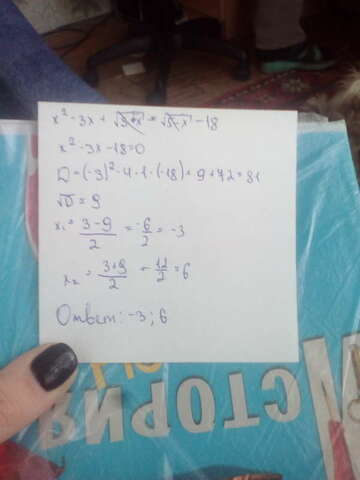 x² - 3x + √5-x = √5-x - 18
x² - 3x - 18 = 0
D = (-3)² - 4 · 1 · (-18) = 9 + 72 = 81
√D = 9
x₁ = 3-9/2 = -6/2 = -3
x₂ = 3+9/2 = 12/2 = 6
Ответ: -3; 6
ИСТОРИЯ